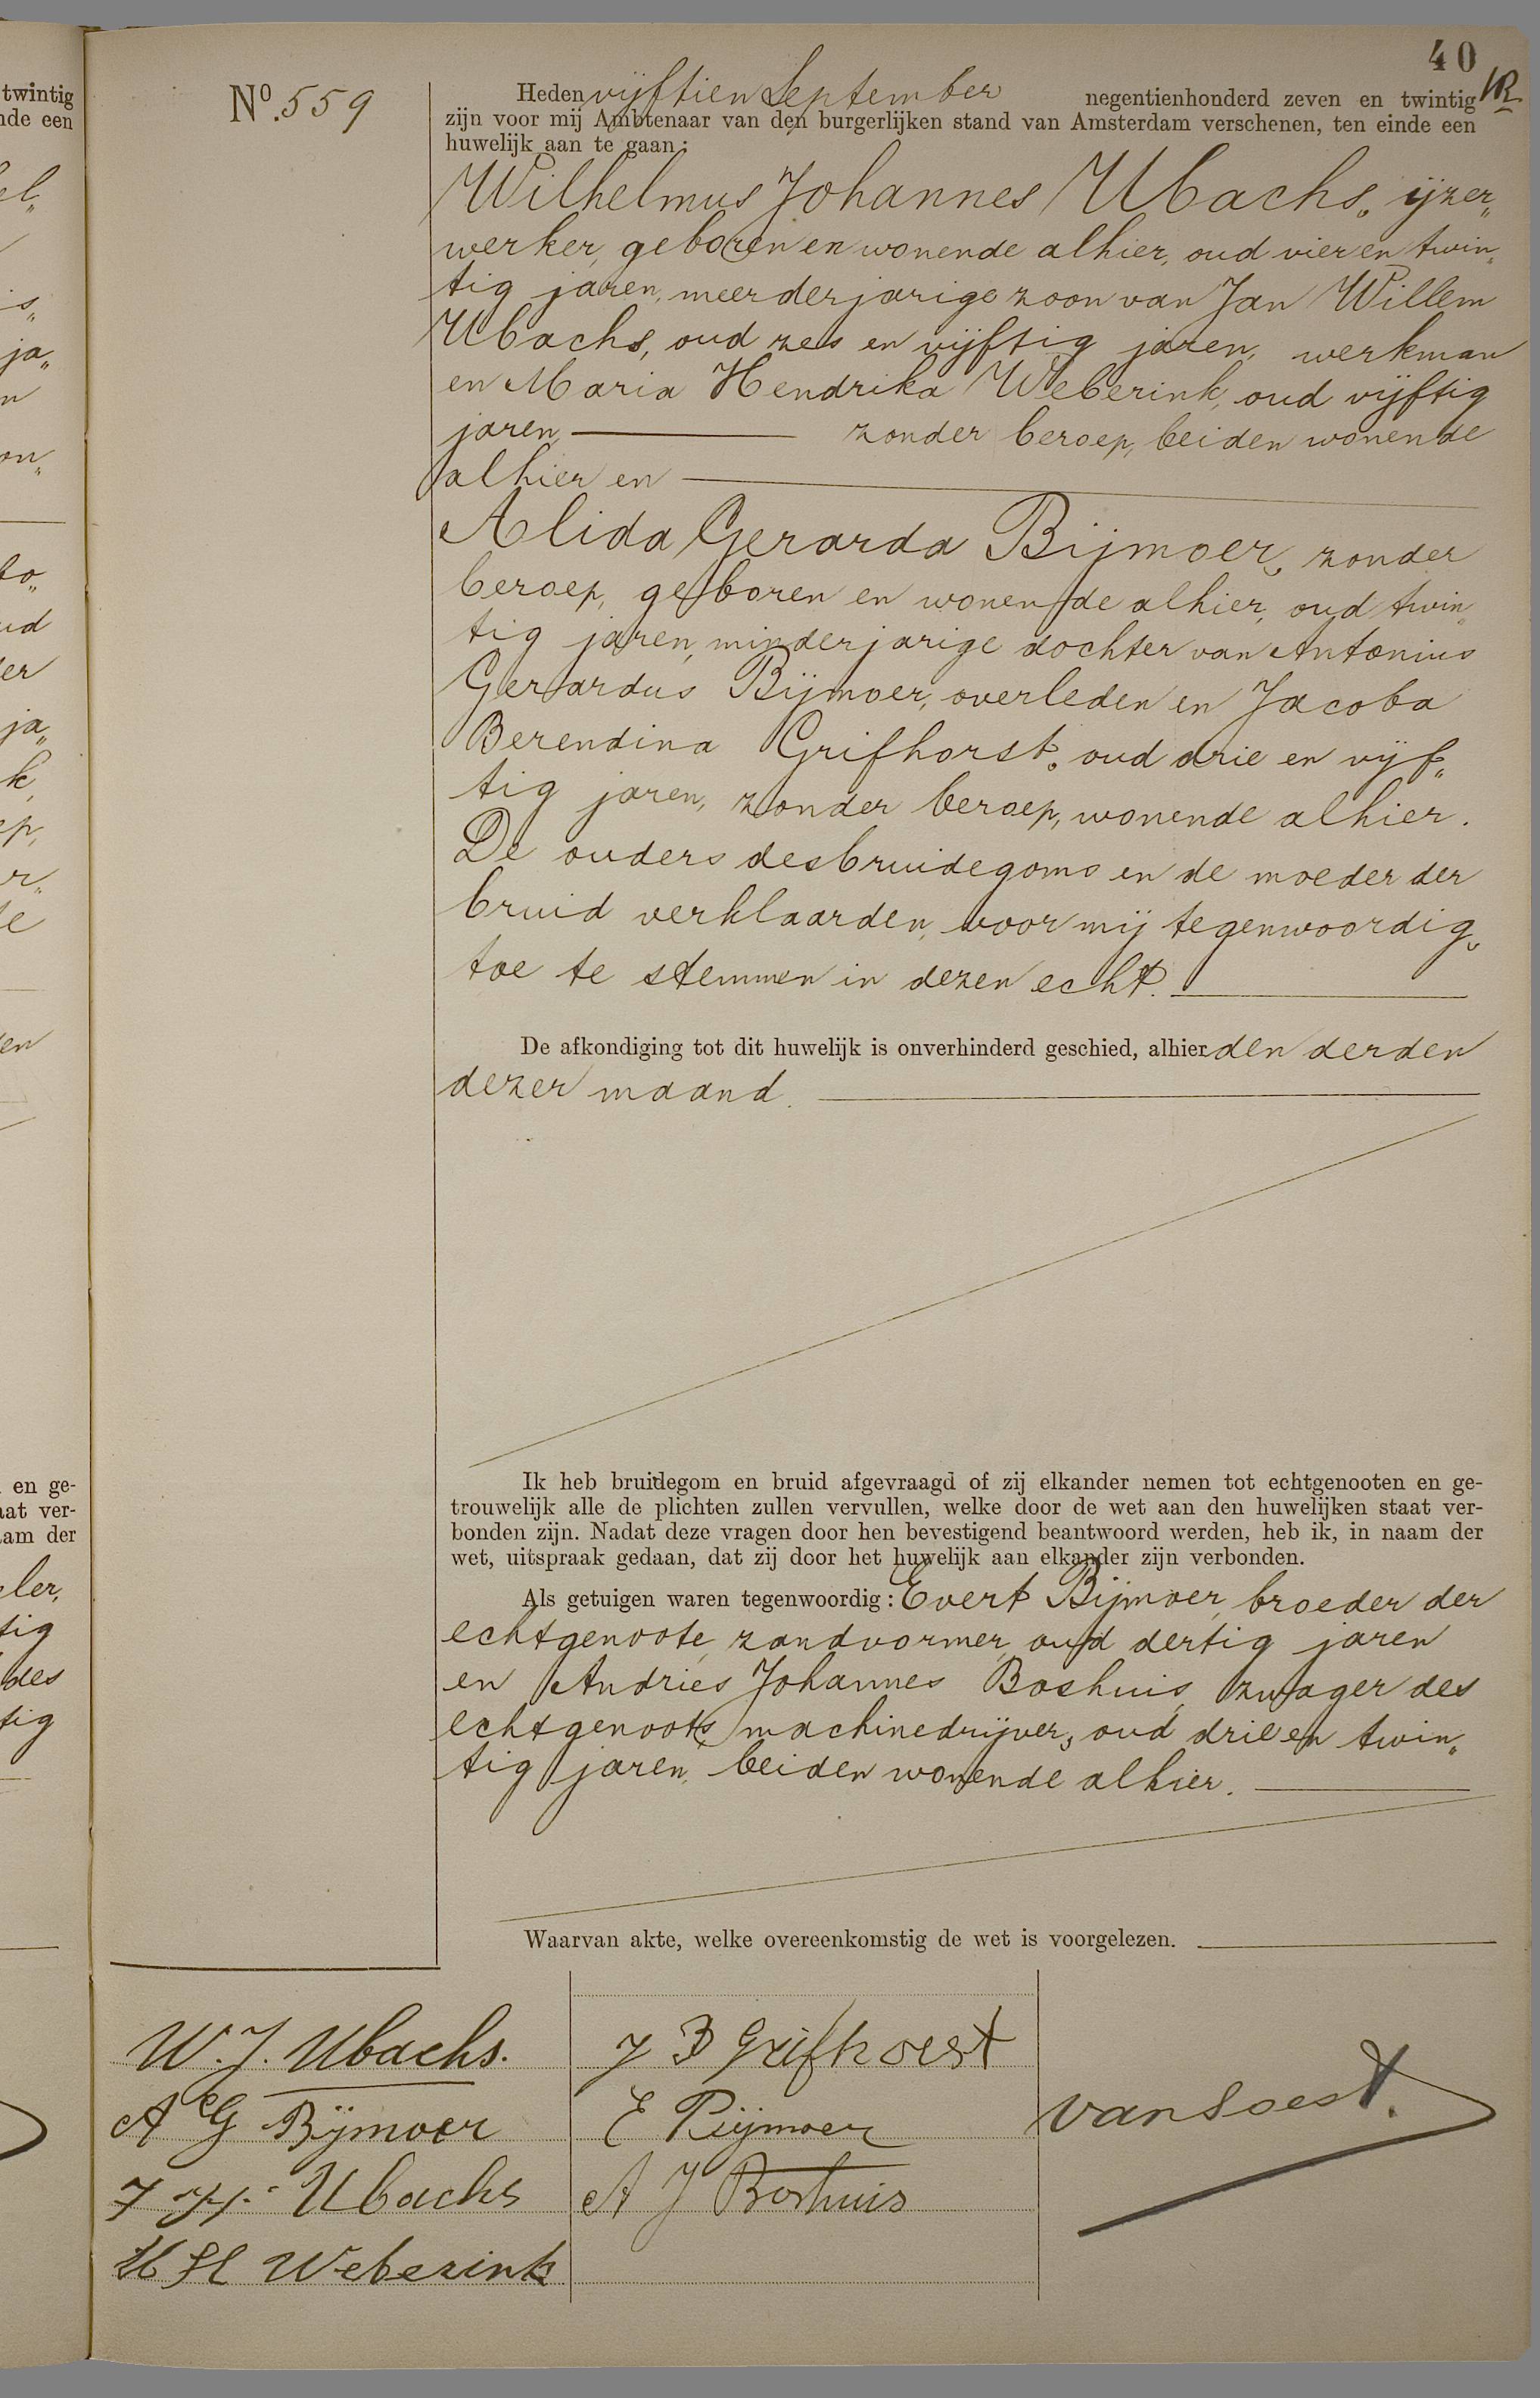 40
VR
twintig
nde een
No. 559
Heden vijftien September negentienhonderd zeven en twintig
zijn voor mij Ambtenaar van den burgerlijken stand van Amsterdam verschenen, ten einde een
huwelijk aan te gaan:
Wilhelmus Johannes Ubachs, ijzer„
werker, geboren en wonende alhier, oud vier en twin„
tig jaren, meerderjarige zoon van Jan Willem
Ubachs, oud zes en vijftig jaren, werkman
en Maria Hendrika Weberink, oud vijftig
jaren, zonder beroep, beiden wonende
alhier en
Alida Gerarda Bijmoer, zonder
beroep, geboren en wonende alhier, oud twin„
tig jaren, minderjarige dochter van Antonius
Gerardus Bijmoer, overleden en Jacoba
Berendina Grifhorst, oud drie en vijf„
tig jaren, zonder beroep, wonende alhier.
De ouders des bruidegoms en de moeder der
bruid verklaarden, voor mij tegenwoordig,
toe te stemmen in dezen echt.
De afkondiging tot dit huwelijk is onverhinderd geschied, alhier den derden
dezer maand.
en ge-
aat ver-
aam der
Ik heb bruidegom en bruid afgevraagd of zij elkander nemen tot echtgenooten en ge-
trouwelijk alle de plichten zullen vervullen, welke door de wet aan den huwelijken staat ver-
bonden zijn. Nadat deze vragen door hen bevestigend beantwoord werden, heb ik, in naam der
wet, uitspraak gedaan, dat zij door het huwelijk aan elkander zijn verbonden.
Als getuigen waren tegenwoordig: Evert Bijmoer, broeder der
echtgenoote, zandvormer, oud dertig jaren
en Andries Johannes Boshuis, zwager des
echtgenoots, machinedrijver, oud drie en twin„
tig jaren, beiden wonende alhier.
Waarvan akte, welke overeenkomstig de wet is voorgelezen.
W. J. Ubachs.
A G Bijmoer
J W. Ubachs
M H Weberink
J B Grifhorst
E Bijmoer
A J Boshuis
van Soest.